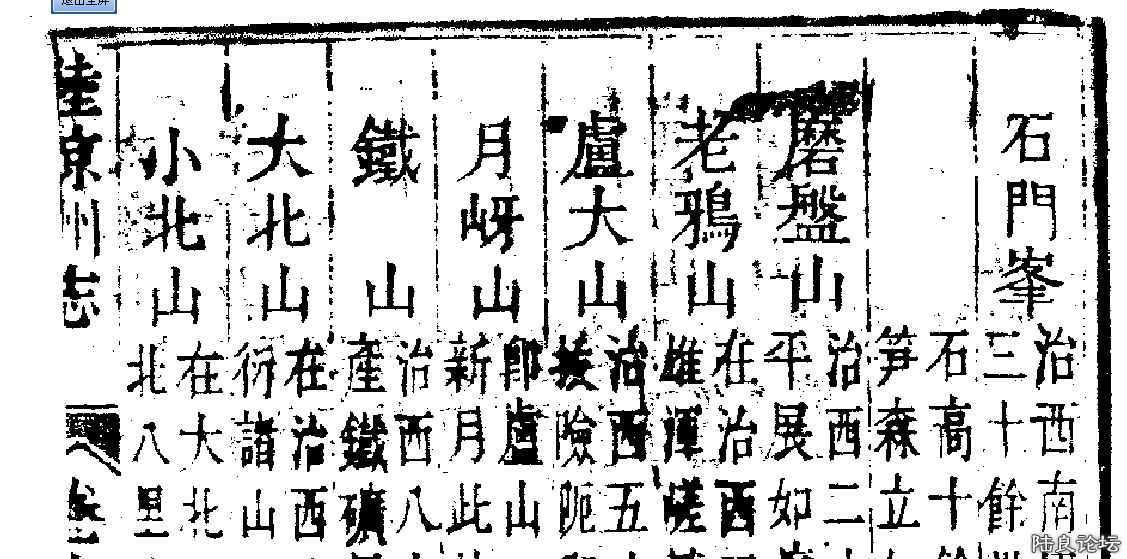 退出全屏
石門峯
治西南
三十餘
石高十
笋森立
磨盤山
治西二
平展如
老鴉山
在治西
雄渾嵯
盧大山
治西五
險阨
月岈山
即盧山
新月此
鐵山
治西八
產鐵礦
大北山
在治西
衍諸山
小北山
在大北
北八里
陸凉州志
陆良论坛